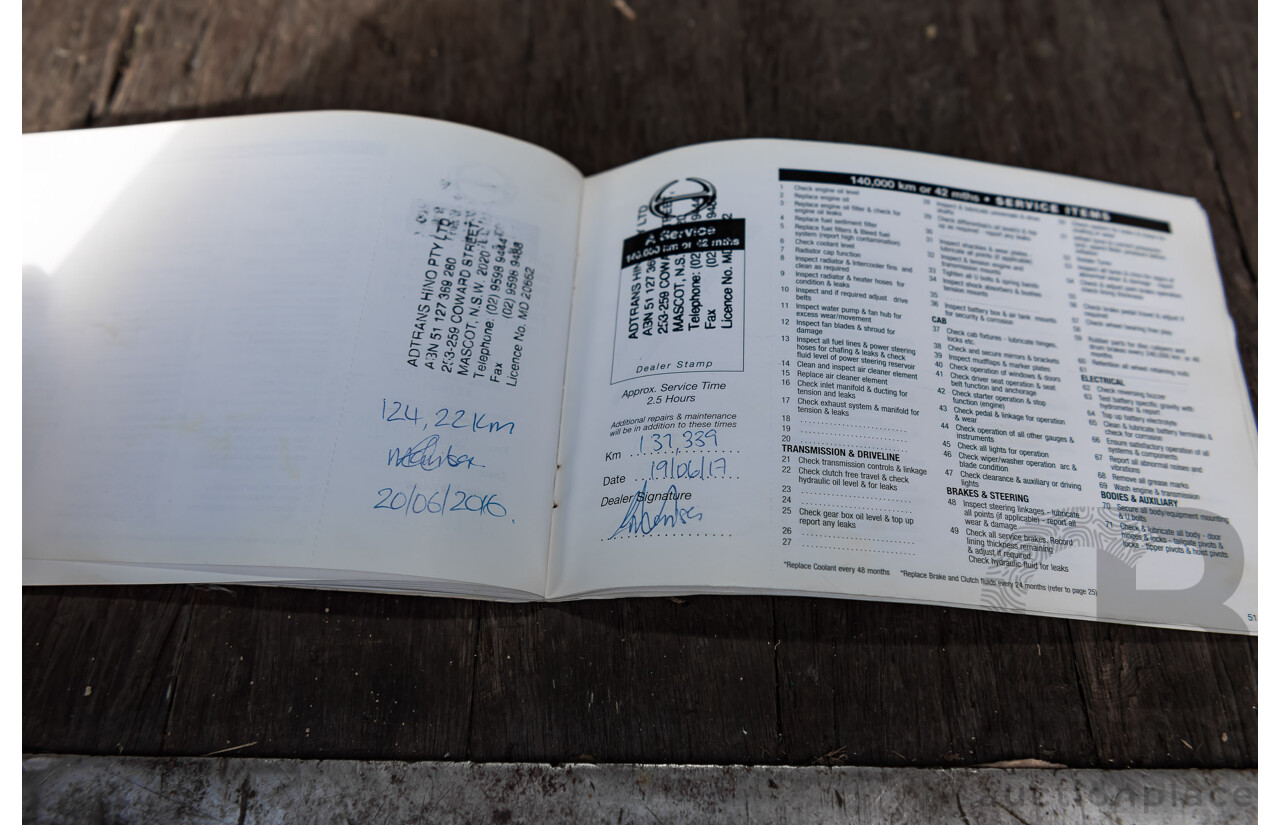 ADTRANS HINO PTY LTD
A3N 51 127 369 280
253-259 COWARD STREET
MASCOT, N.S.W. 2020
Telephone: (02) 9598 9484
Fax (02) 9598 9488
Licence No. MD 20662
124,22 Km
20/06/2016.
A Service
140,000 km or 42 mths
ADTRANS HINO
A3N 51 127 36
253-259 COWA
MASCOT, N.S.
Telephone: (02)
Fax (02)
Licence No. MD
Dealer Stamp
Approx. Service Time
2.5 Hours
Additional repairs & maintenance
will be in addition to these times
Km 137,339
Date 19/06/17
Dealer Signature
140,000 km or 42 mths • SERVICE ITEMS
1 Check engine oil level
2 Replace engine oil
3 Replace engine oil filter & check for
engine oil leaks
4 Replace fuel sediment filter
5 Replace fuel filters & Bleed fuel
system (report high contamination)
6 Check coolant level
7 Radiator cap function
8 Inspect radiator & Intercooler fins and
clean as required
9 Inspect radiator & heater hoses for
condition & leaks
10 Inspect and if required adjust drive
belts
11 Inspect water pump & fan hub for
excess wear/movement
12 Inspect fan blades & shroud for
damage
13 Inspect all fuel lines & power steering
hoses for chafing & leaks & check
fluid level of power steering reservoir
14 Clean and inspect air cleaner element
15 Replace air cleaner element
16 Check inlet manifold & ducting for
tension and leaks
17 Check exhaust system & manifold for
tension & leaks
18
19
20
TRANSMISSION & DRIVELINE
21 Check transmission controls & linkage
22 Check clutch free travel & check
hydraulic oil level & for leaks
23
24
25 Check gear box oil level & top up
report any leaks
26
27
33 Tighten all U bolts & spring bands
34 Inspect shock absorbers & bushes
35
36 Inspect battery box & air tank mounts
for security & corrosion
CAB
37 Check cab fixtures - lubricate hinges,
locks etc.
38 Check and secure mirrors & brackets
39 Inspect mudflaps & marker plates
40 Check operation of windows & doors
41 Check driver seat operation & seat
belt function and anchorage
42 Check starter operation & stop
function (engine)
43 Check pedal & linkage for operation
& wear
44 Check operation of all other gauges &
instruments
45 Check all lights for operation
46 Check wiper/washer operation arc &
blade condition
47 Check clearance & auxiliary or driving
lights
BRAKES & STEERING
48 Inspect steering linkages - lubricate
all points (if applicable) - report all
wear & damage
49 Check all service brakes. Record
lining thickness remaining
& adjust if required
Check hydraulic fluid for leaks
60 Retention all wheel retaining nuts
61
ELECTRICAL
62 Check reversing buzzer
63 Test battery specific gravity with
hydrometer & report
64 Top up battery electrolyte
65 Clean & lubricate battery terminals &
check for corrosion
66 Ensure satisfactory operation of all
systems & components
67 Report all abnormal noises and
vibrations
68 Remove all grease marks
69 Wash engine & transmission
BODIES & AUXILIARY
70 Secure all body/equipment mounting
& U bolts
71 Check & lubricate all body - door
hinges & locks - tailgate pivots &
locks - tipper pivots & hoist pivots
*Replace Coolant every 48 months *Replace Brake and Clutch fluids every 24 months (refer to page 25)
51
auctionplace